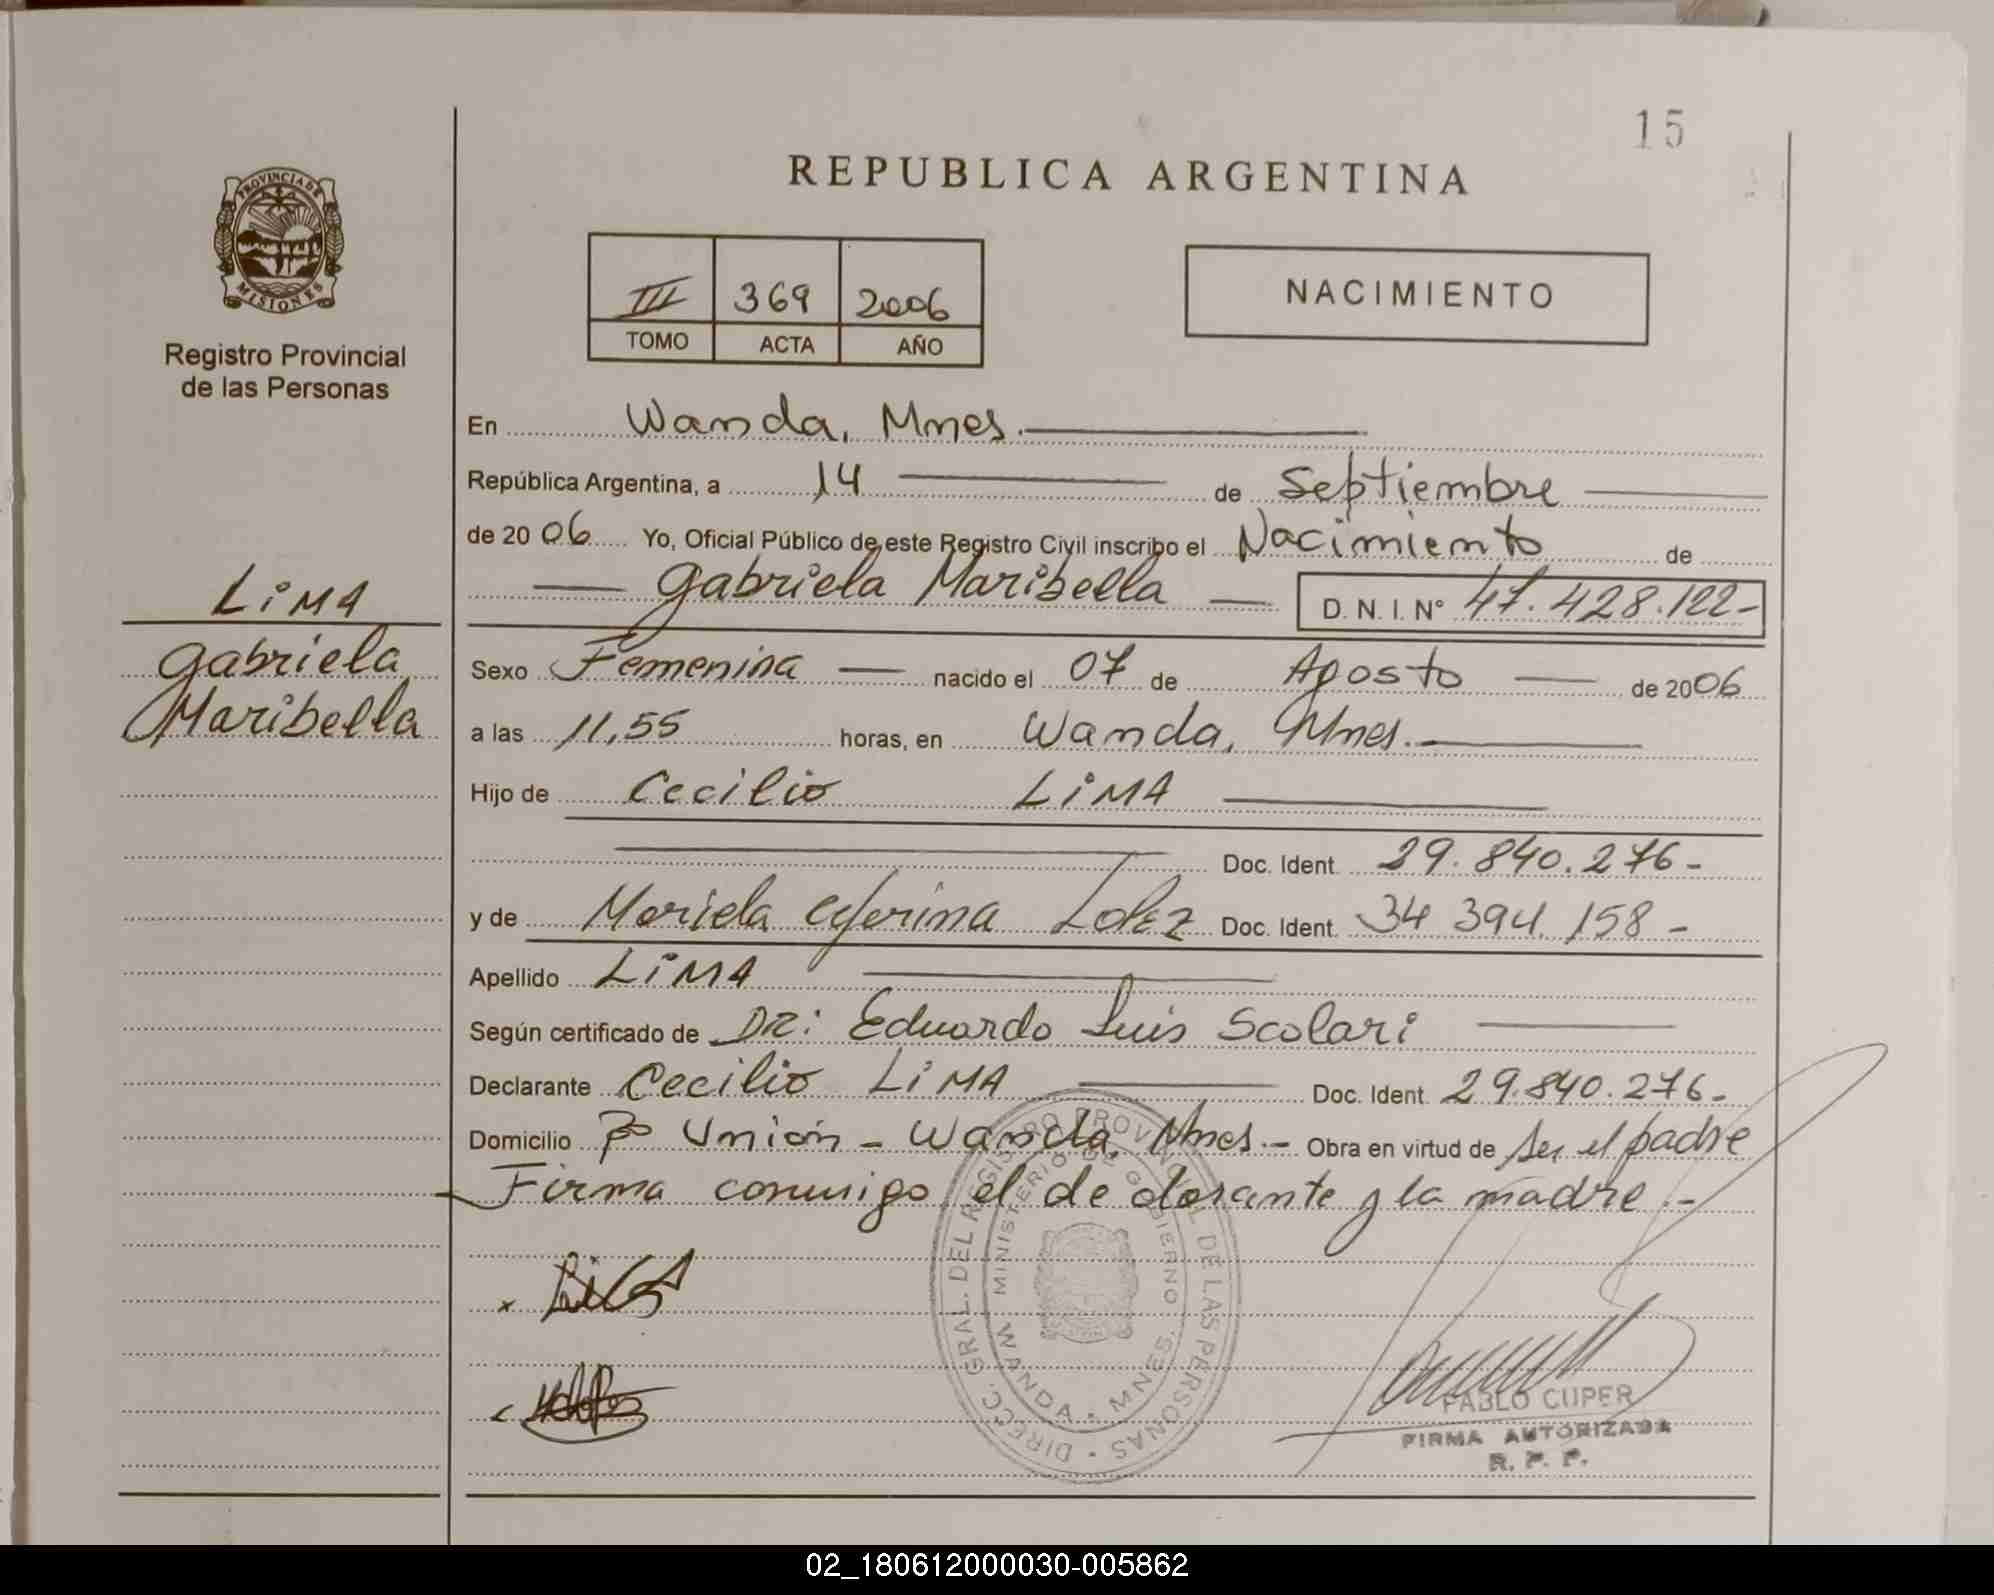 15
REPUBLICA ARGENTINA
PROVINCIA DE
MISIONES
Registro Provincial
de las Personas
III 369 2006
TOMO ACTA AÑO
NACIMIENTO
En Wanda, Mnes.
República Argentina, a 14 de Septiembre
de 2006 Yo, Oficial Público de este Registro Civil inscribo el Nacimiento de
Gabriela Maribella D. N. I. N° 47.428.122-
LiMA
Gabriela
Maribella
Sexo Femenina nacido el 07 de Agosto de 2006
a las 11,55 horas, en Wanda, Mnes.
Hijo de Cecilio LiMA
Doc. Ident. 29.840.276-
y de Mariela Ceferina Lopez Doc. Ident. 34 394. 158-
Apellido LiMA
Según certificado de DR: Eduardo Luis Scolari
Declarante Cecilio LiMA Doc. Ident. 29.840.276-
Domicilio Bo Unión - Wanda, Mnes.- Obra en virtud de ser el padre
Firma conmigo el declarante y la madre.-
DIRECC. GRAL. DEL REGISTRO PROVINCIAL DE LAS PERSONAS
MINISTERIO DE GOBIERNO
WANDA - MNES.
PABLO CUPER
FIRMA AUTORIZADA
R. P. P.
02_180612000030-005862